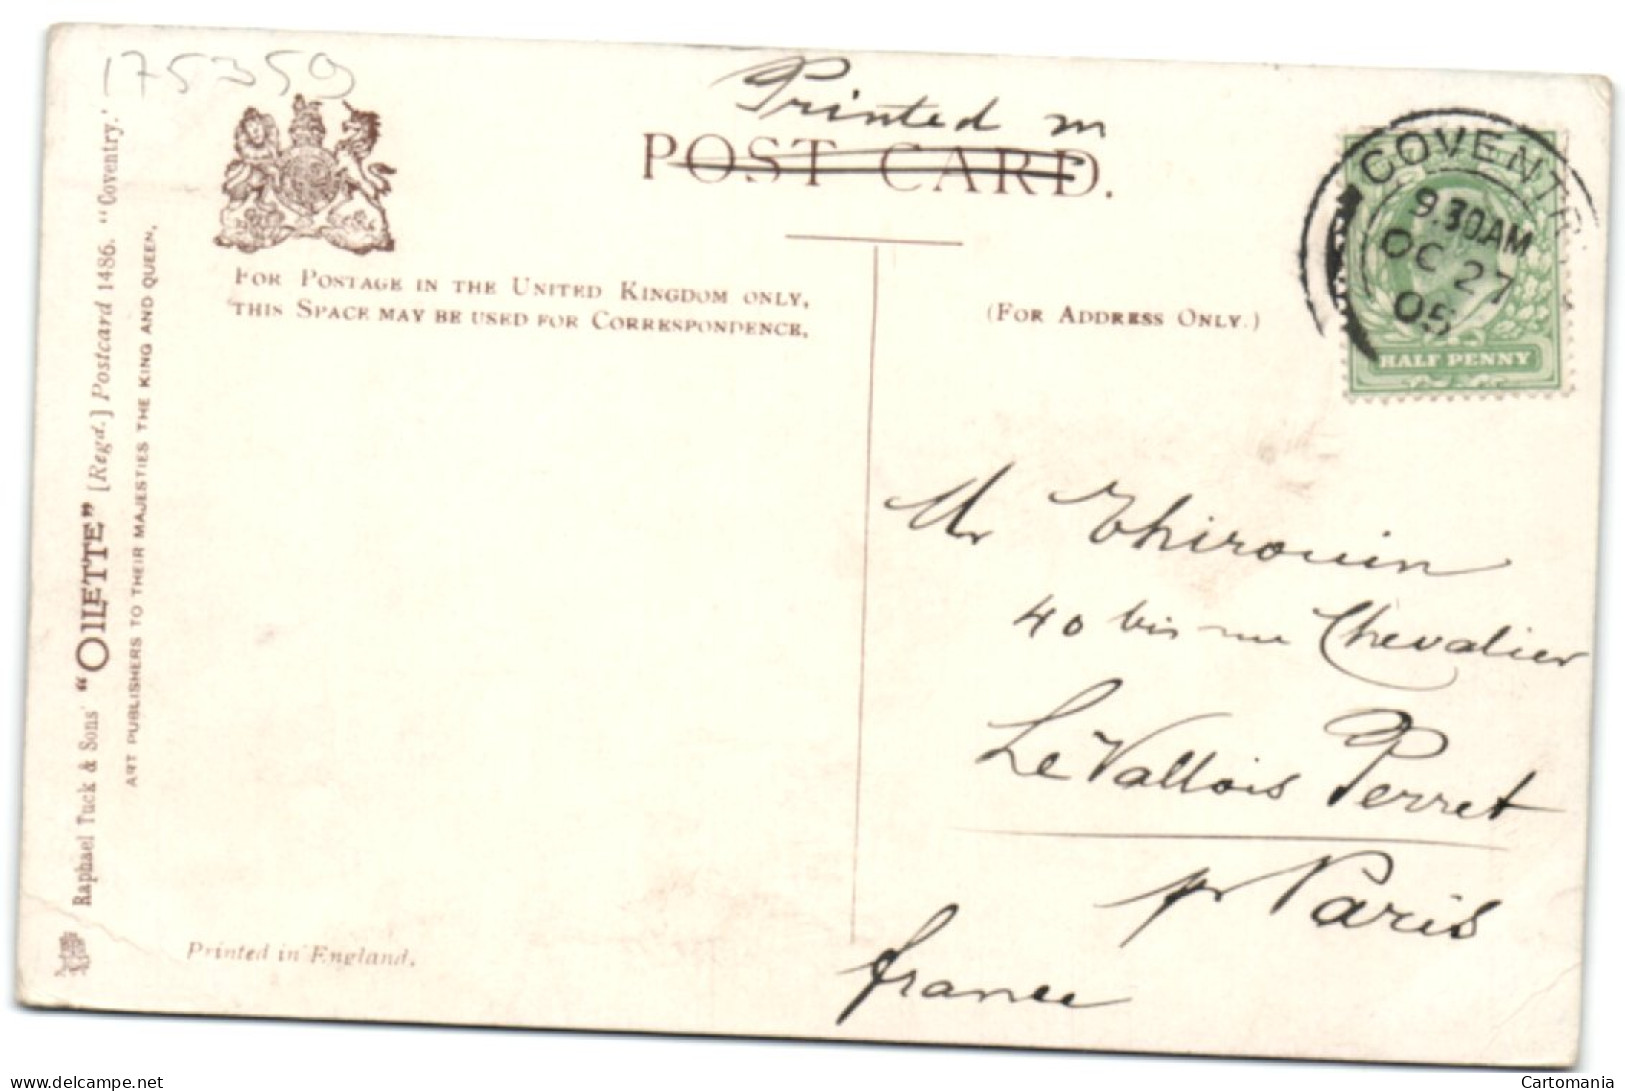 175359
Printed in
POST CARD.
COVENTR
9.30AM
OC 27
05
HALF PENNY
FOR POSTAGE IN THE UNITED KINGDOM ONLY,
THIS SPACE MAY BE USED FOR CORRESPONDENCE.
(FOR ADDRESS ONLY.)
Raphael Tuck & Sons' "OILETTE" [Regd.] Postcard 1486. "Coventry."
ART PUBLISHERS TO THEIR MAJESTIES THE KING AND QUEEN.
Mr Thirouin
40 bis rue Chevalier
Le Vallois Perret
pr Paris
france
Printed in England.
Cartomania
delcampe.net